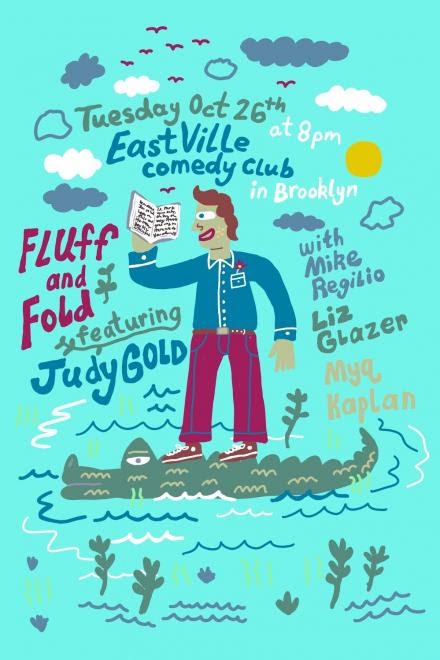 Tuesday Oct 26th
at 8pm
EastVille
comedy club
in Brooklyn
Fluff
and
Fold
featuring
Judy GOLD
with
Mike
Regilio
Liz
Glazer
Myq
Kaplan